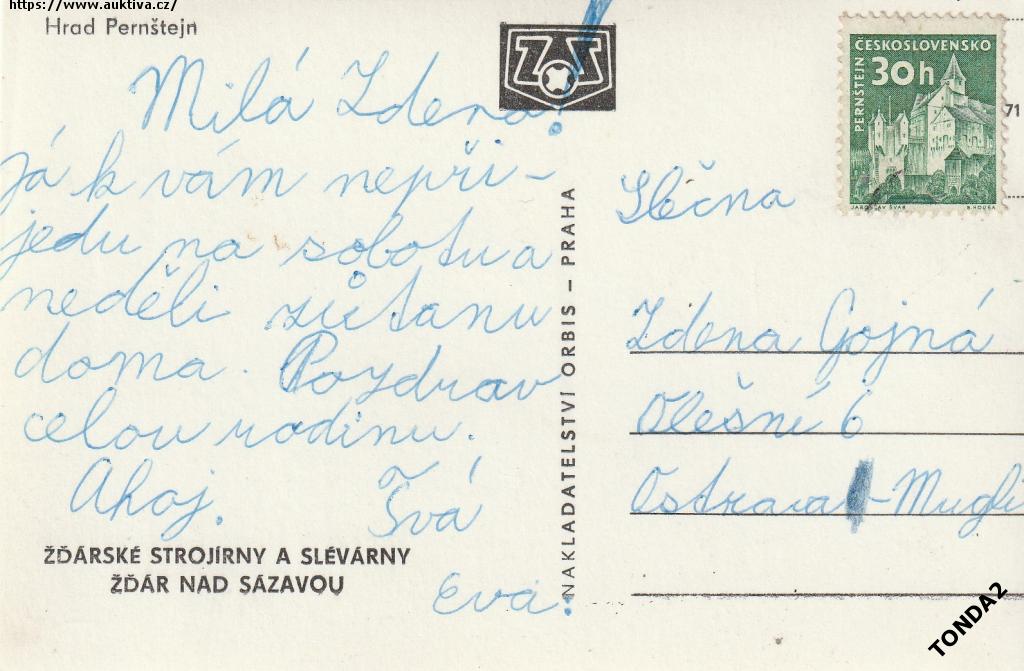 https://www.auktiva.cz/
Hrad Pernštejn
Milá Zdena!
Já k vám nepři-
jedu na sobotu a
neděli zůtanu
doma. Pozdrav
celou rodinu.
Ahoj. Tvá
Eva!
ŽĎÁRSKÉ STROJÍRNY A SLÉVÁRNY
ŽĎÁR NAD SÁZAVOU
NAKLADATELSTVÍ ORBIS – PRAHA
ČESKOSLOVENSKO
30h
PERNŠTEJN
JAROSLAV ŠVÁB
B. HOUSA
71
Slečna
Zdena Gojná
Olešní 6
Ostrava-Mugli
TONDA2